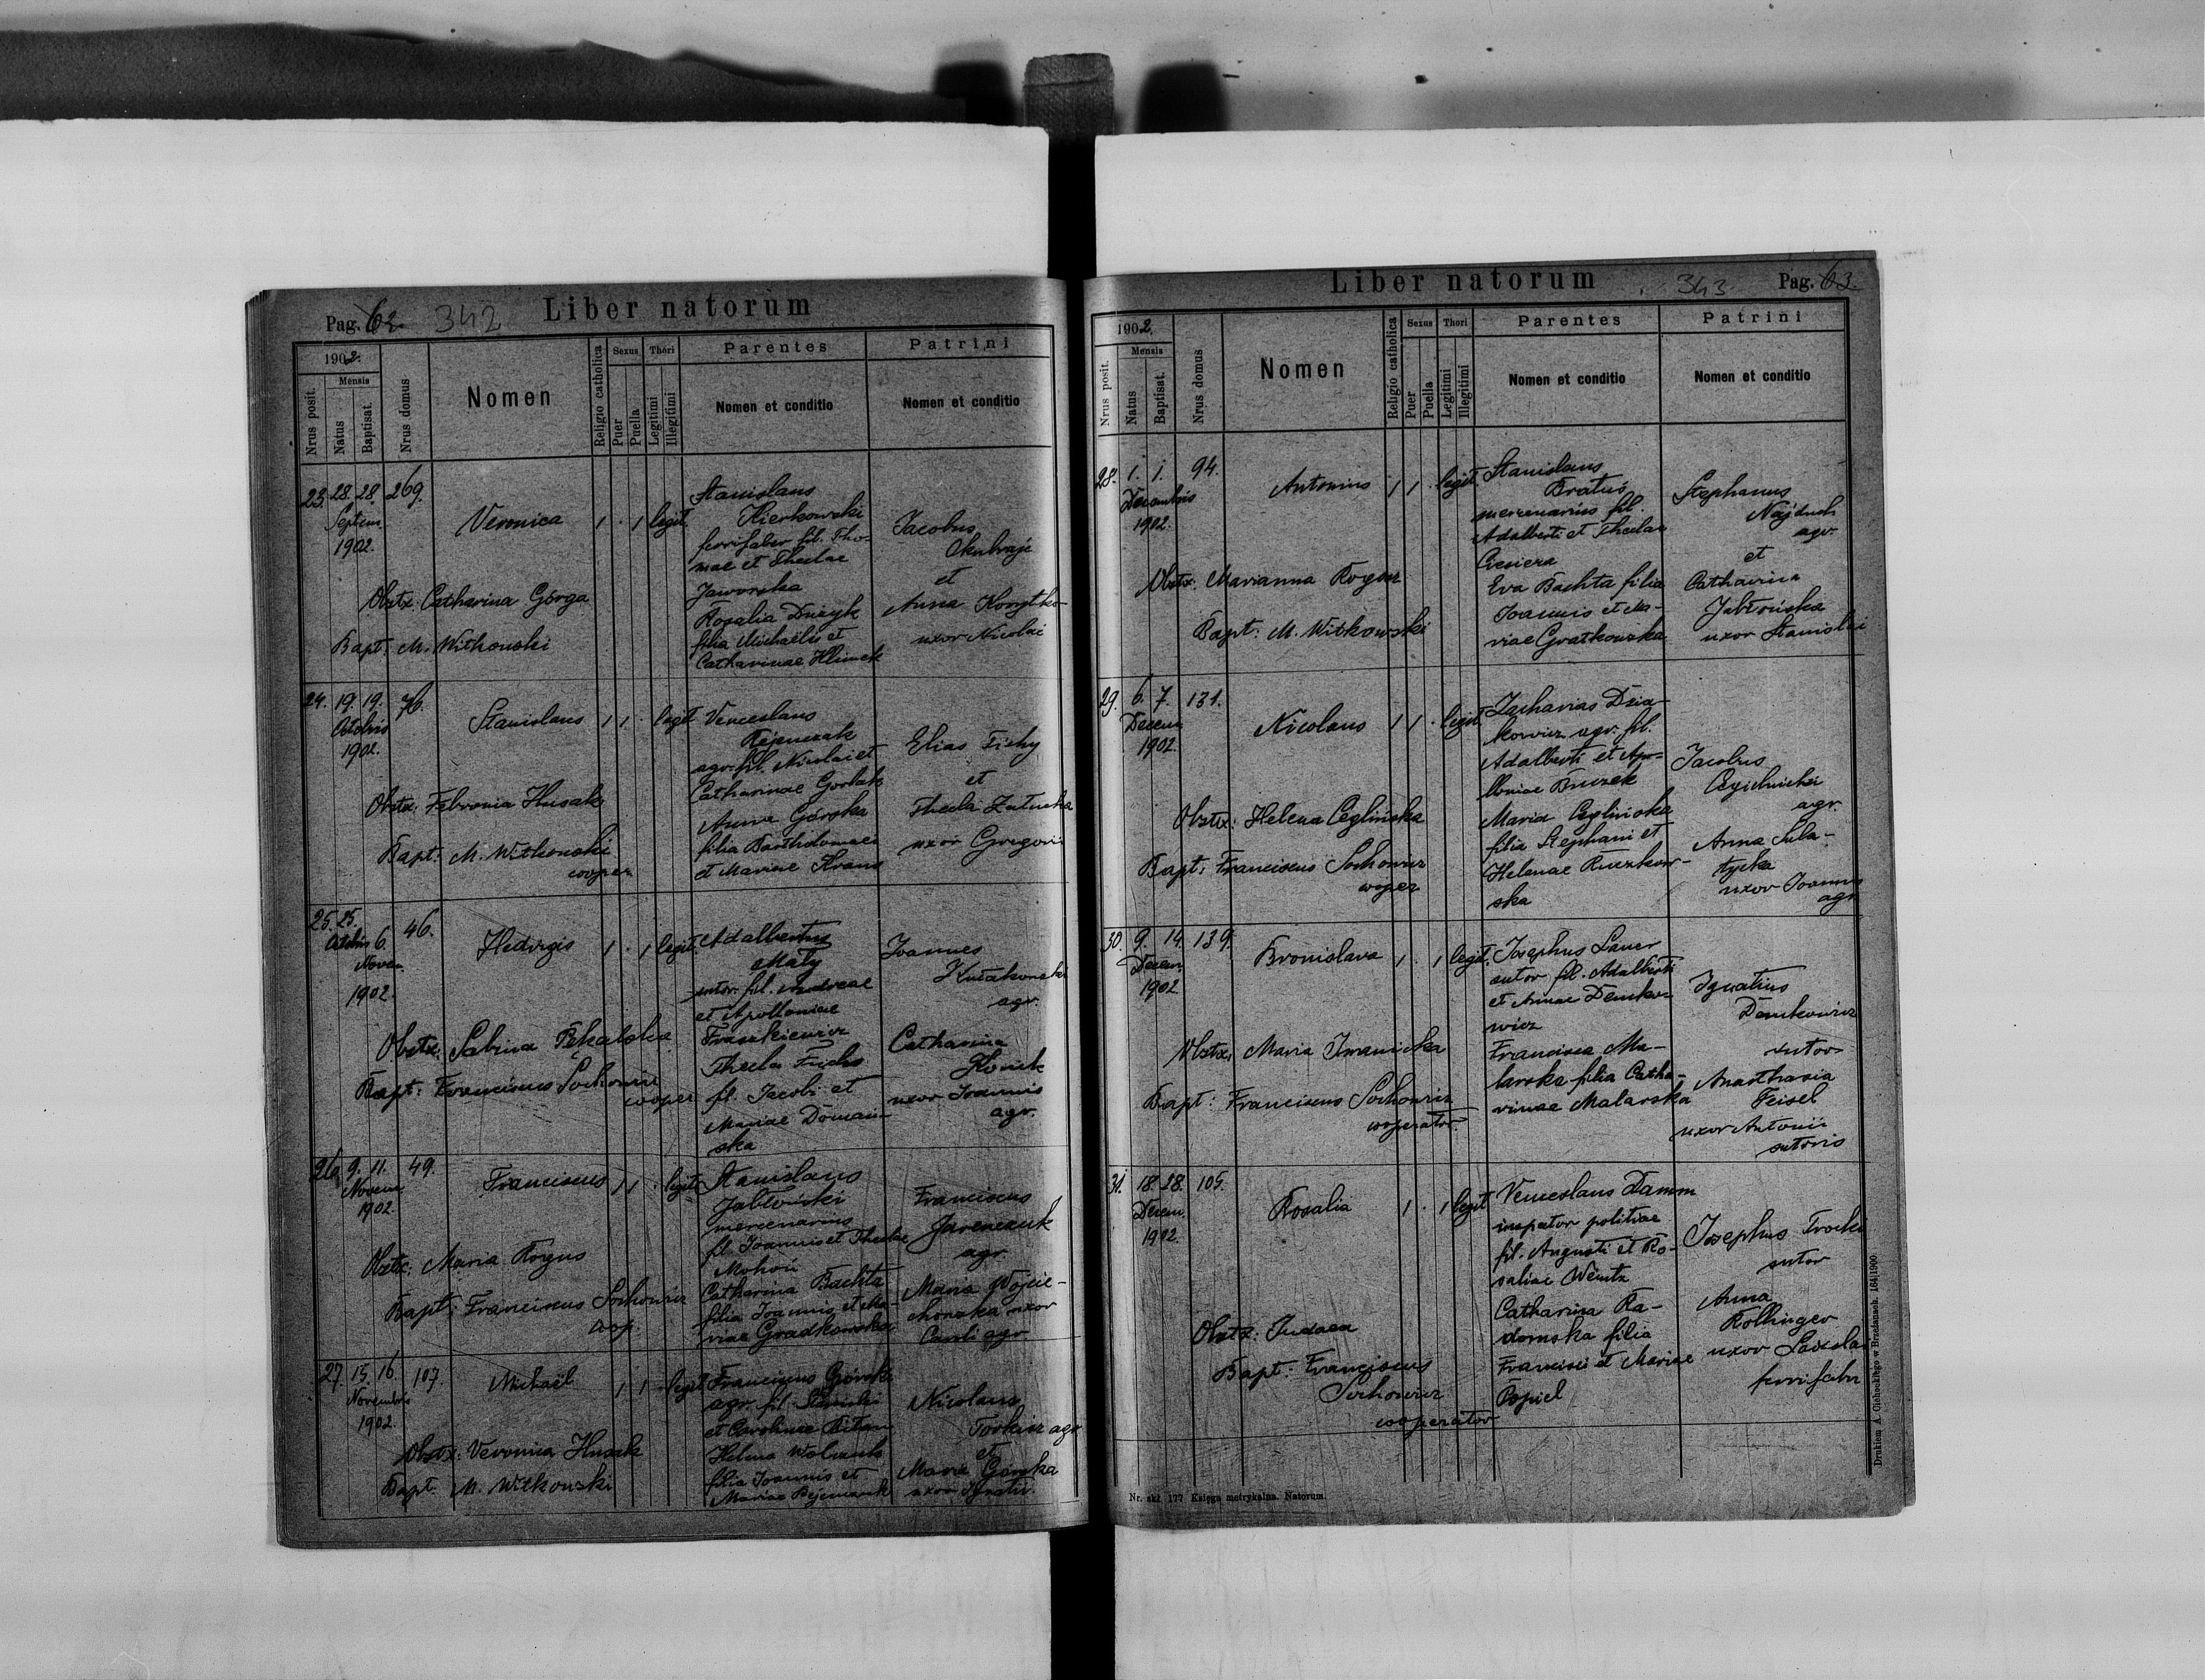 Pag. 62. 342 Liber natorum
1902.
Nrus posit.
Mensis
Natus
Baptisat.
Nrus domus
Nomen
Religio catholica
Sexus
Puer
Puella
Thori
Legitimi
Illegitimi
Parentes
Nomen et conditio
Patrini
Nomen et conditio
23. 28. 28. 269.
Septem.
1902.
Veronica 1 . 1 legit.
Obstx: Catharina Górga
Bapt. M. Witkowski
Stanislaus
Kierkowski
ferrifaber fil. Tho-
mae et Theclae
Jaworska
Rosalia Duzyk
filia Michaëlis et
Catharinae Klimek
Jacobus
et
Anna
uxor Nicolai
24. 19. 19. 76.
Octobris
1902.
Stanislaus 1 1 . legit
Obstx: Febronia Husak
Bapt: M. Witkowski
cooper
Venceslaus
agr. fil. Nicolai et
Catharinae
Anna Górska
filia Bartholomaei
et Mariae Kraus
Elias Tichy
et
Thecla Załucka
uxor Gregorii
25. 25. 6. 46.
Octobris
Novem.
1902.
Hedvigis 1 . 1 legit.
Obstx: Sabina Pękalska
Bapt: Franciscus Sochowicz
cooper
Adalbertus
Mały
sutor. fil. Andreae
et Apolloniae
Fraszkiewicz
Thecla Fuchs
fl. Jacobi et
Mariae Doman-
ska
Joannes
agr.
Catharina
uxor Joannis
agr.
26. 9. 11. 49.
Novem
1902.
Franciscus 1 1 . legit
Obstx: Maria Rogus
Bapt: Franciscus Sochowicz
coop.
Stanislaus
Jabłoński
mercenarius
fl. Joannis et Theclae
Mohoń
Catharina Bachta
filia Joannis et Ma-
riae Gradkowska
Franciscus
Jaremczuk
agr.
Maria Wojcie-
chowska uxor
Caroli agr
27. 15. 16. 107.
Novembris
1902.
Michaël 1 1 . legit
Obstx: Veronica Husak
Bapt. M. Witkowski
Franciscus Górski
agr. fil. Stanislai
et Carolinae
Helena
filia Joannis et
Mariae
Nicolaus
agr
et
Maria Górska
uxor Ignatii.
Liber natorum 343 Pag. 63.
1902.
Nrus posit.
Mensis
Natus
Baptisat.
Nrus domus
Nomen
Religio catholica
Sexus
Puer
Puella
Thori
Legitimi
Illegitimi
Parentes
Nomen et conditio
Patrini
Nomen et conditio
28. 1. 1. 94.
Decembris
1902.
Antonius 1 1 . legit.
Obstx: Marianna Rogus
Bapt: M. Witkowski
Stanislaus
Bratuś
mercenarius fil.
Adalberti et Theclae
Eva Bachta filia
Joannis et Ma-
riae Gratkowska
Stephanus
Najduch
agr.
et
Catharina
Jabłońska
uxor Stanislai
29. 6. 7. 131.
Decem
1902.
Nicolaus 1 1 . legit.
Obstx: Helena Ceglińska
Bapt: Franciscus Sochowicz
cooper
Zacharias Dzia-
kowicz agr. fil.
Adalberti et Apo-
lloniae Buczek
Maria Ceglińska
filia Stephani et
Helenae Ruczkow-
ska
Jacobus
agr.
Anna Sula-
tycka
uxor Joannis
agr
30. 9. 14. 139.
Decem.
1902
Bronislava 1 . 1 legit.
Obstx: Maria Imanicka
Bapt: Franciscus Sochowicz
cooperator.
Josephus Lauer
sutor fil. Adalberti
et Annae Demko-
wicz
Francisca Ma-
larska filia Catha-
rinae Malarska
Ignatius
Demkowicz
sutor
Anasthasia
Feisel
uxor Antonii
sutoris
31. 18. 28. 105.
Decem.
1902.
Rosalia 1 . 1 legit
Obstx: Judaea
Bapt: Franciscus
Sochowicz
cooperator
Venceslaus Damm
inspector politiae
fil. Augusti et Ro-
saliae Wentz
Catharina Ra-
domska filia
Francisci et Mariae
Popiel
Josephus Trocki
sutor
Anna
Rollinger
uxor Ladislai
ferrifabri
Nr. skł. 177. Księga metrykalna. Natorum.
Drukiem A. Cicheckiego w Brzeżanach. 164/1900.